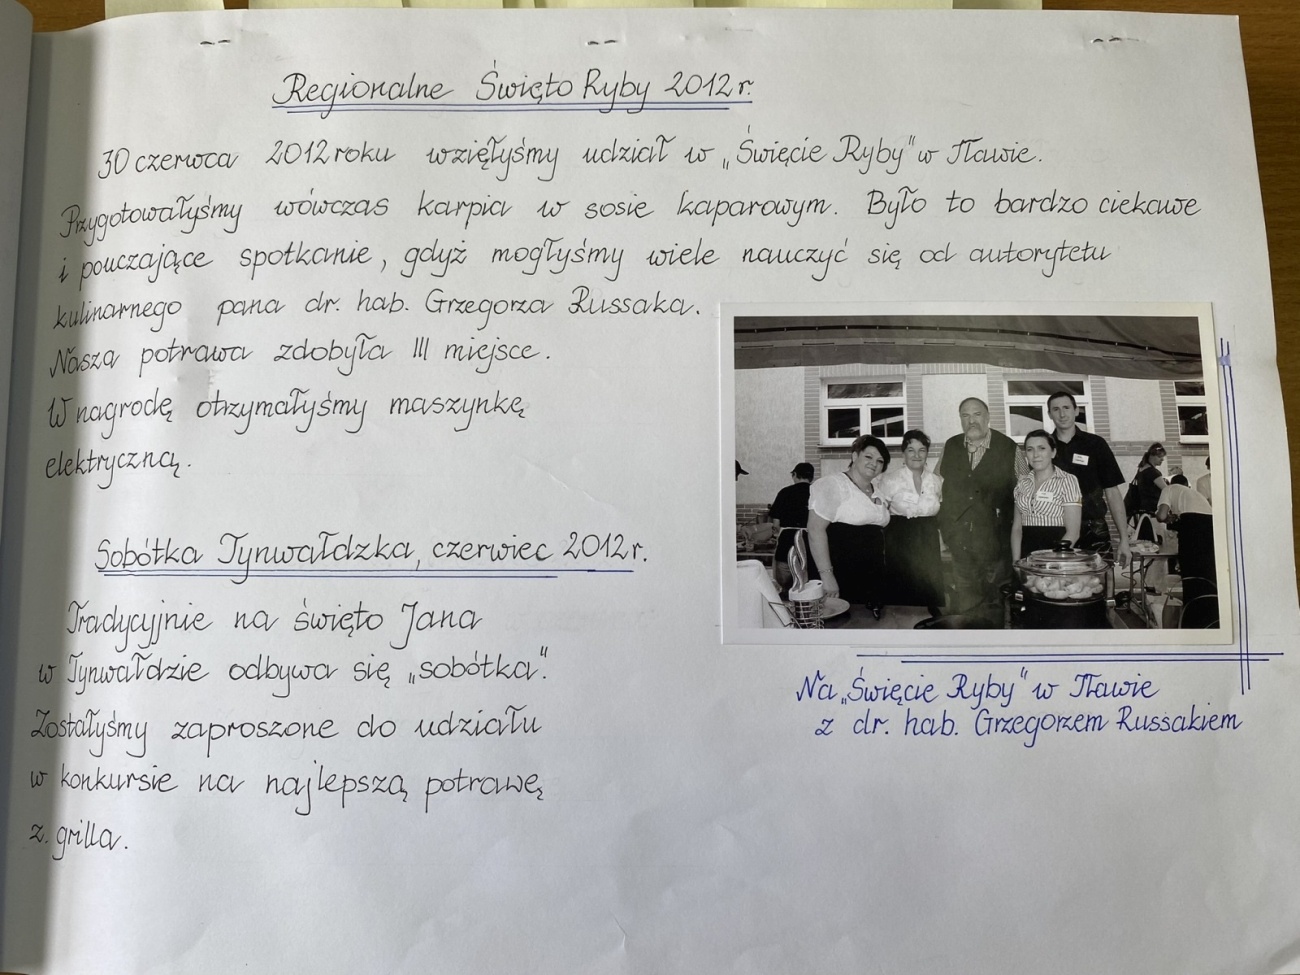 Regionalne Święto Ryby 2012 r.
30 czerwca 2012 roku wzięłyśmy udział w „Święcie Ryby" w Iławie.
Przygotowałyśmy wówczas karpia w sosie kaparowym. Było to bardzo ciekawe
i pouczające spotkanie, gdyż mogłyśmy wiele nauczyć się od autorytetu
kulinarnego pana dr. hab. Grzegorza Russaka.
Nasza potrawa zdobyła III miejsce.
W nagrodę otrzymałyśmy maszynkę
elektryczną.
Na „Święcie Ryby" w Iławie
z dr. hab. Grzegorzem Russakiem
Sobótka Tynwałdzka, czerwiec 2012 r.
Tradycyjnie na święto Jana
w Tynwałdzie odbywa się „sobótka".
Zostałyśmy zaproszone do udziału
w konkursie na najlepszą potrawę
z grilla.